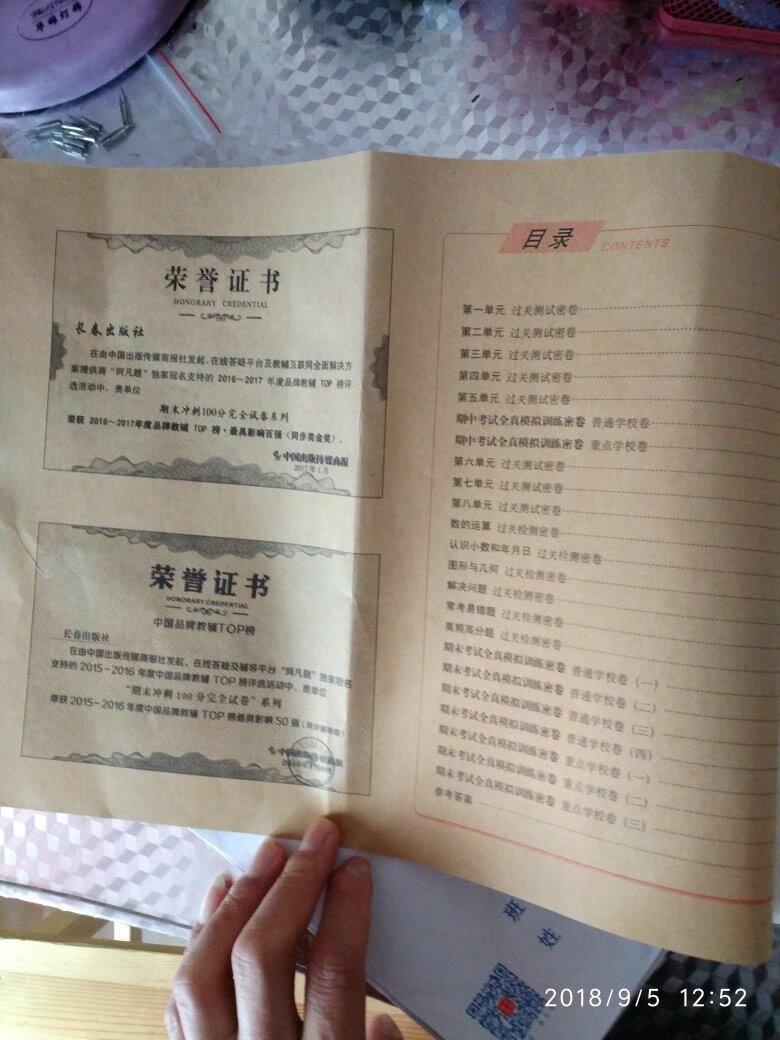 荣誉证书
HONORARY CREDENTIAL
长春出版社
在由中国出版传媒商报社发起、在线答疑平台及教辅互联网全面解决方
案提供商“阿凡题”独家冠名支持的 2016～2017 年度品牌教辅 TOP 榜评
选活动中，贵单位
期末冲刺100分完全试卷系列
荣获 2016～2017年度品牌教辅 TOP 榜·最具影响百强（同步类金奖）。
中国出版传媒商报
2017年1月
荣誉证书
HONORARY CREDENTIAL
中国品牌教辅TOP榜
长春出版社
在由中国出版传媒商报社发起、在线答疑及辅导平台“阿凡题”独家冠名
支持的 2015～2016 年度中国品牌教辅 TOP 榜评选活动中，贵单位
“期末冲刺 100 分完全试卷”系列
荣获 2015～2016 年度中国品牌教辅 TOP 榜最具影响 50 强
中国出版传媒商报
目录 CONTENTS
第一单元 过关测试密卷
第二单元 过关测试密卷
第三单元 过关测试密卷
第四单元 过关测试密卷
第五单元 过关测试密卷
期中考试全真模拟训练密卷 普通学校卷
期中考试全真模拟训练密卷 重点学校卷
第六单元 过关测试密卷
第七单元 过关测试密卷
第八单元 过关测试密卷
数的运算 过关检测密卷
认识小数和年月日 过关检测密卷
图形与几何 过关检测密卷
解决问题 过关检测密卷
常考易错题 过关检测密卷
高频高分题 过关检测密卷
期末考试全真模拟训练密卷 普通学校卷（一）
期末考试全真模拟训练密卷 普通学校卷（二）
期末考试全真模拟训练密卷 普通学校卷（三）
期末考试全真模拟训练密卷 普通学校卷（四）
期末考试全真模拟训练密卷 重点学校卷（一）
期末考试全真模拟训练密卷 重点学校卷（二）
期末考试全真模拟训练密卷 重点学校卷（三）
参考答案
班
姓
2018/9/5 12:52